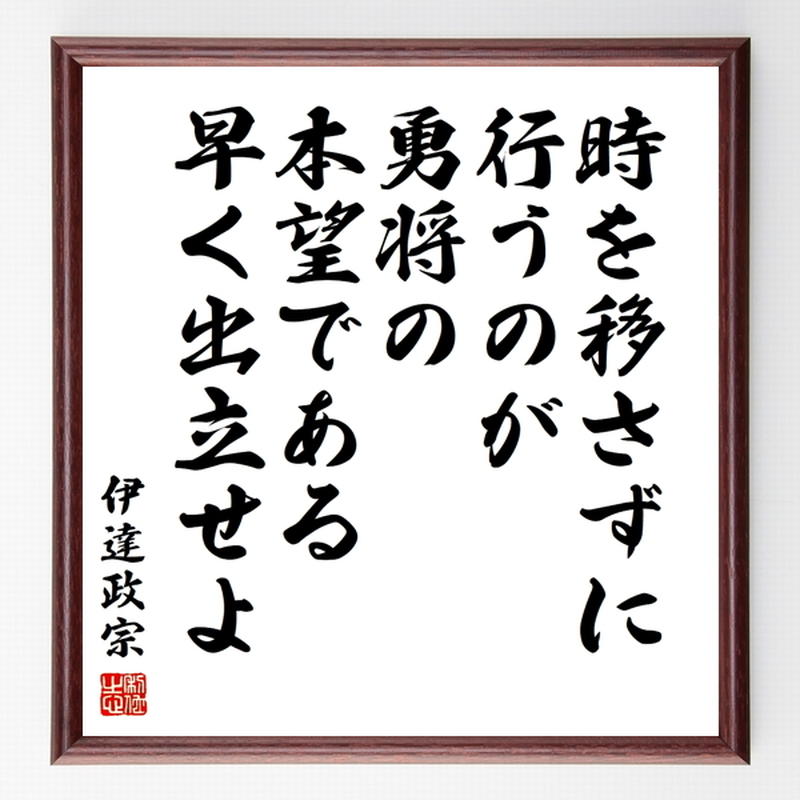 時を移さずに
行うのが
勇将の
本望である
早く出立せよ
伊達政宗